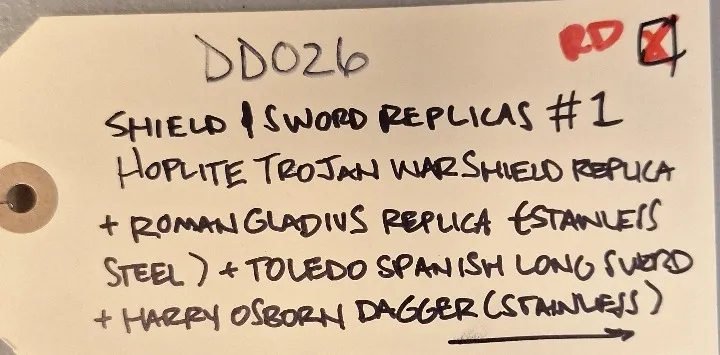 DD026 RD X
SHIELD / SWORD REPLICAS #1
HOPLITE TROJAN WAR SHIELD REPLICA
+ ROMAN GLADIUS REPLICA (STAINLESS
STEEL) + TOLEDO SPANISH LONG SWORD
+ HARRY OSBORN DAGGER (STAINLESS)